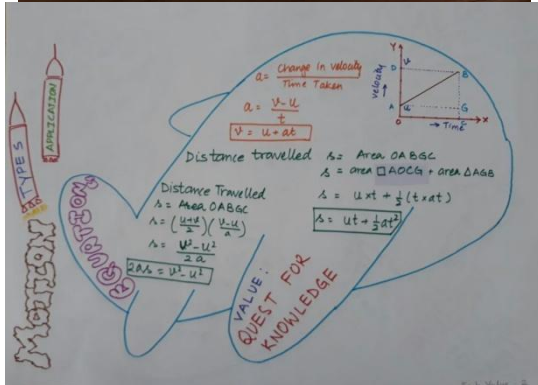 MOTION
TYPES
APPLICATION
EQUATION
a = Change in velocity / Time Taken
a = v-u / t
v = u+at
Y
D
v
B
velocity
A
u
G
O
C
X
→ Time
Distance travelled
s = Area OABGC
s = area □AOCG + area ΔAGB
s = u×t + ½(t×at)
s = ut + ½at²
Distance Travelled
s = Area OABGC
s = (u+v / 2)(v-u / a)
s = v²-u² / 2a
2as = v²-u²
VALUE:
QUEST FOR
KNOWLEDGE